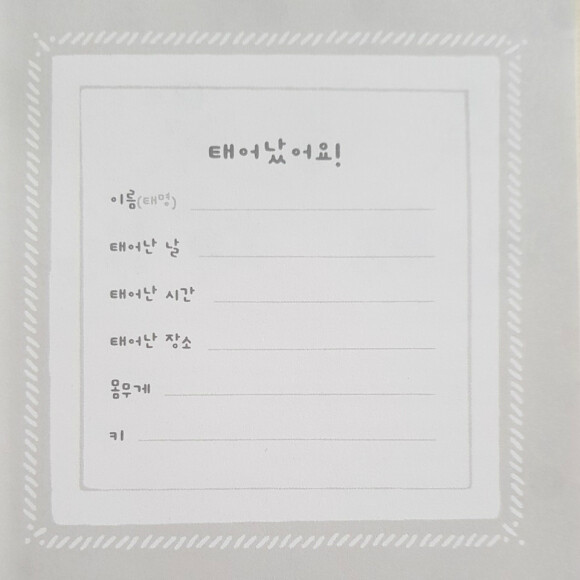 태어났어요!
이름(태명)
태어난 날
태어난 시간
태어난 장소
몸무게
키